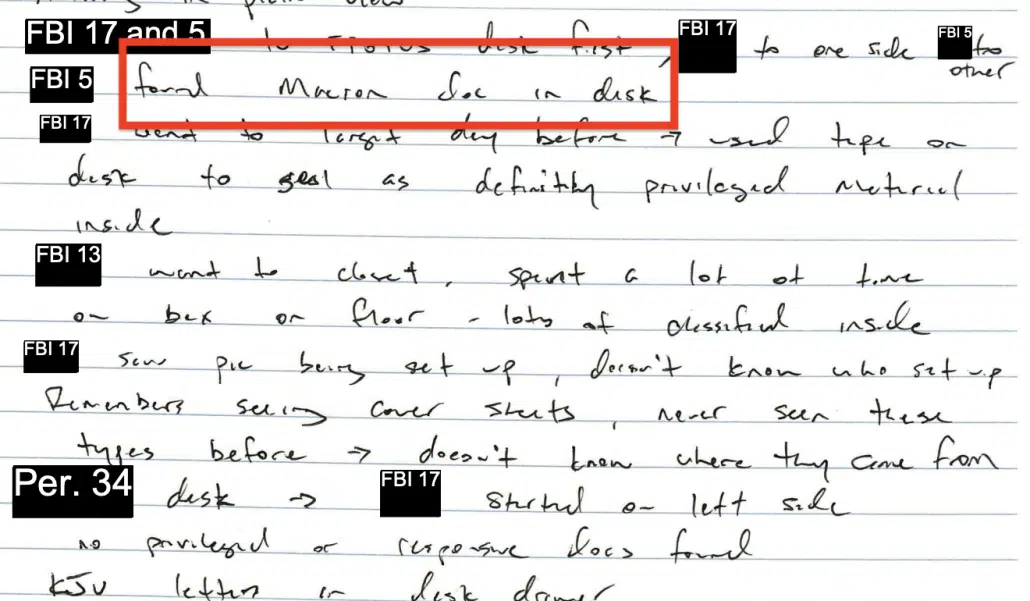 in plain view
FBI 17 and 5 to desk first, FBI 17 to one side FBI 5 to other
FBI 5 found Macron doc in desk
FBI 17 went to target day before → used tape on
desk to seal as privileged material
inside
FBI 13 went to closet, spent a lot of time
on box on floor - lots of classified inside
FBI 17 saw pic being set up, doesn't know who set up
Remembers seeing cover sheets, never seen these
types before → doesn't know where they came from
Per. 34 desk → FBI 17 started on left side
no privileged or responsive docs found
KJU letters in desk drawer